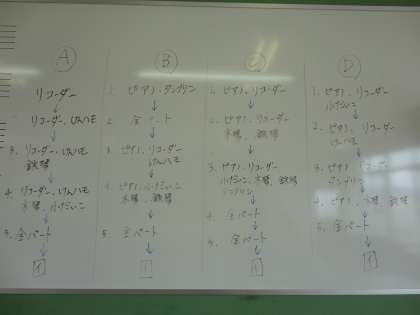 A
リコーダー
リコーダー、けんハモ
3. リコーダー、けんハモ
鉄琴
4. リコーダー、けんハモ
木琴、小だいこ
5. 全パート
イ
B
1. ピアノ、タンブリン
2. 全パート
3. ピアノ、リコーダー
けんハモ
4. ピアノ、小だいこ
木琴、鉄琴
5. 全パート
C
1. ピアノ、リコーダー
2. ピアノ、リコーダー
木琴、鉄琴
3. ピアノ、リコーダー
小だいこ、木琴、鉄琴
タンブリン
4. 全パート
5. 全パート
イ
D
1. ピアノ、リコーダー
小だいこ
2. ピアノ、リコーダー
けんハモ
3. ピアノ、リコーダー
タンブリン
4. ピアノ、木琴、鉄琴
5. 全パート
イ